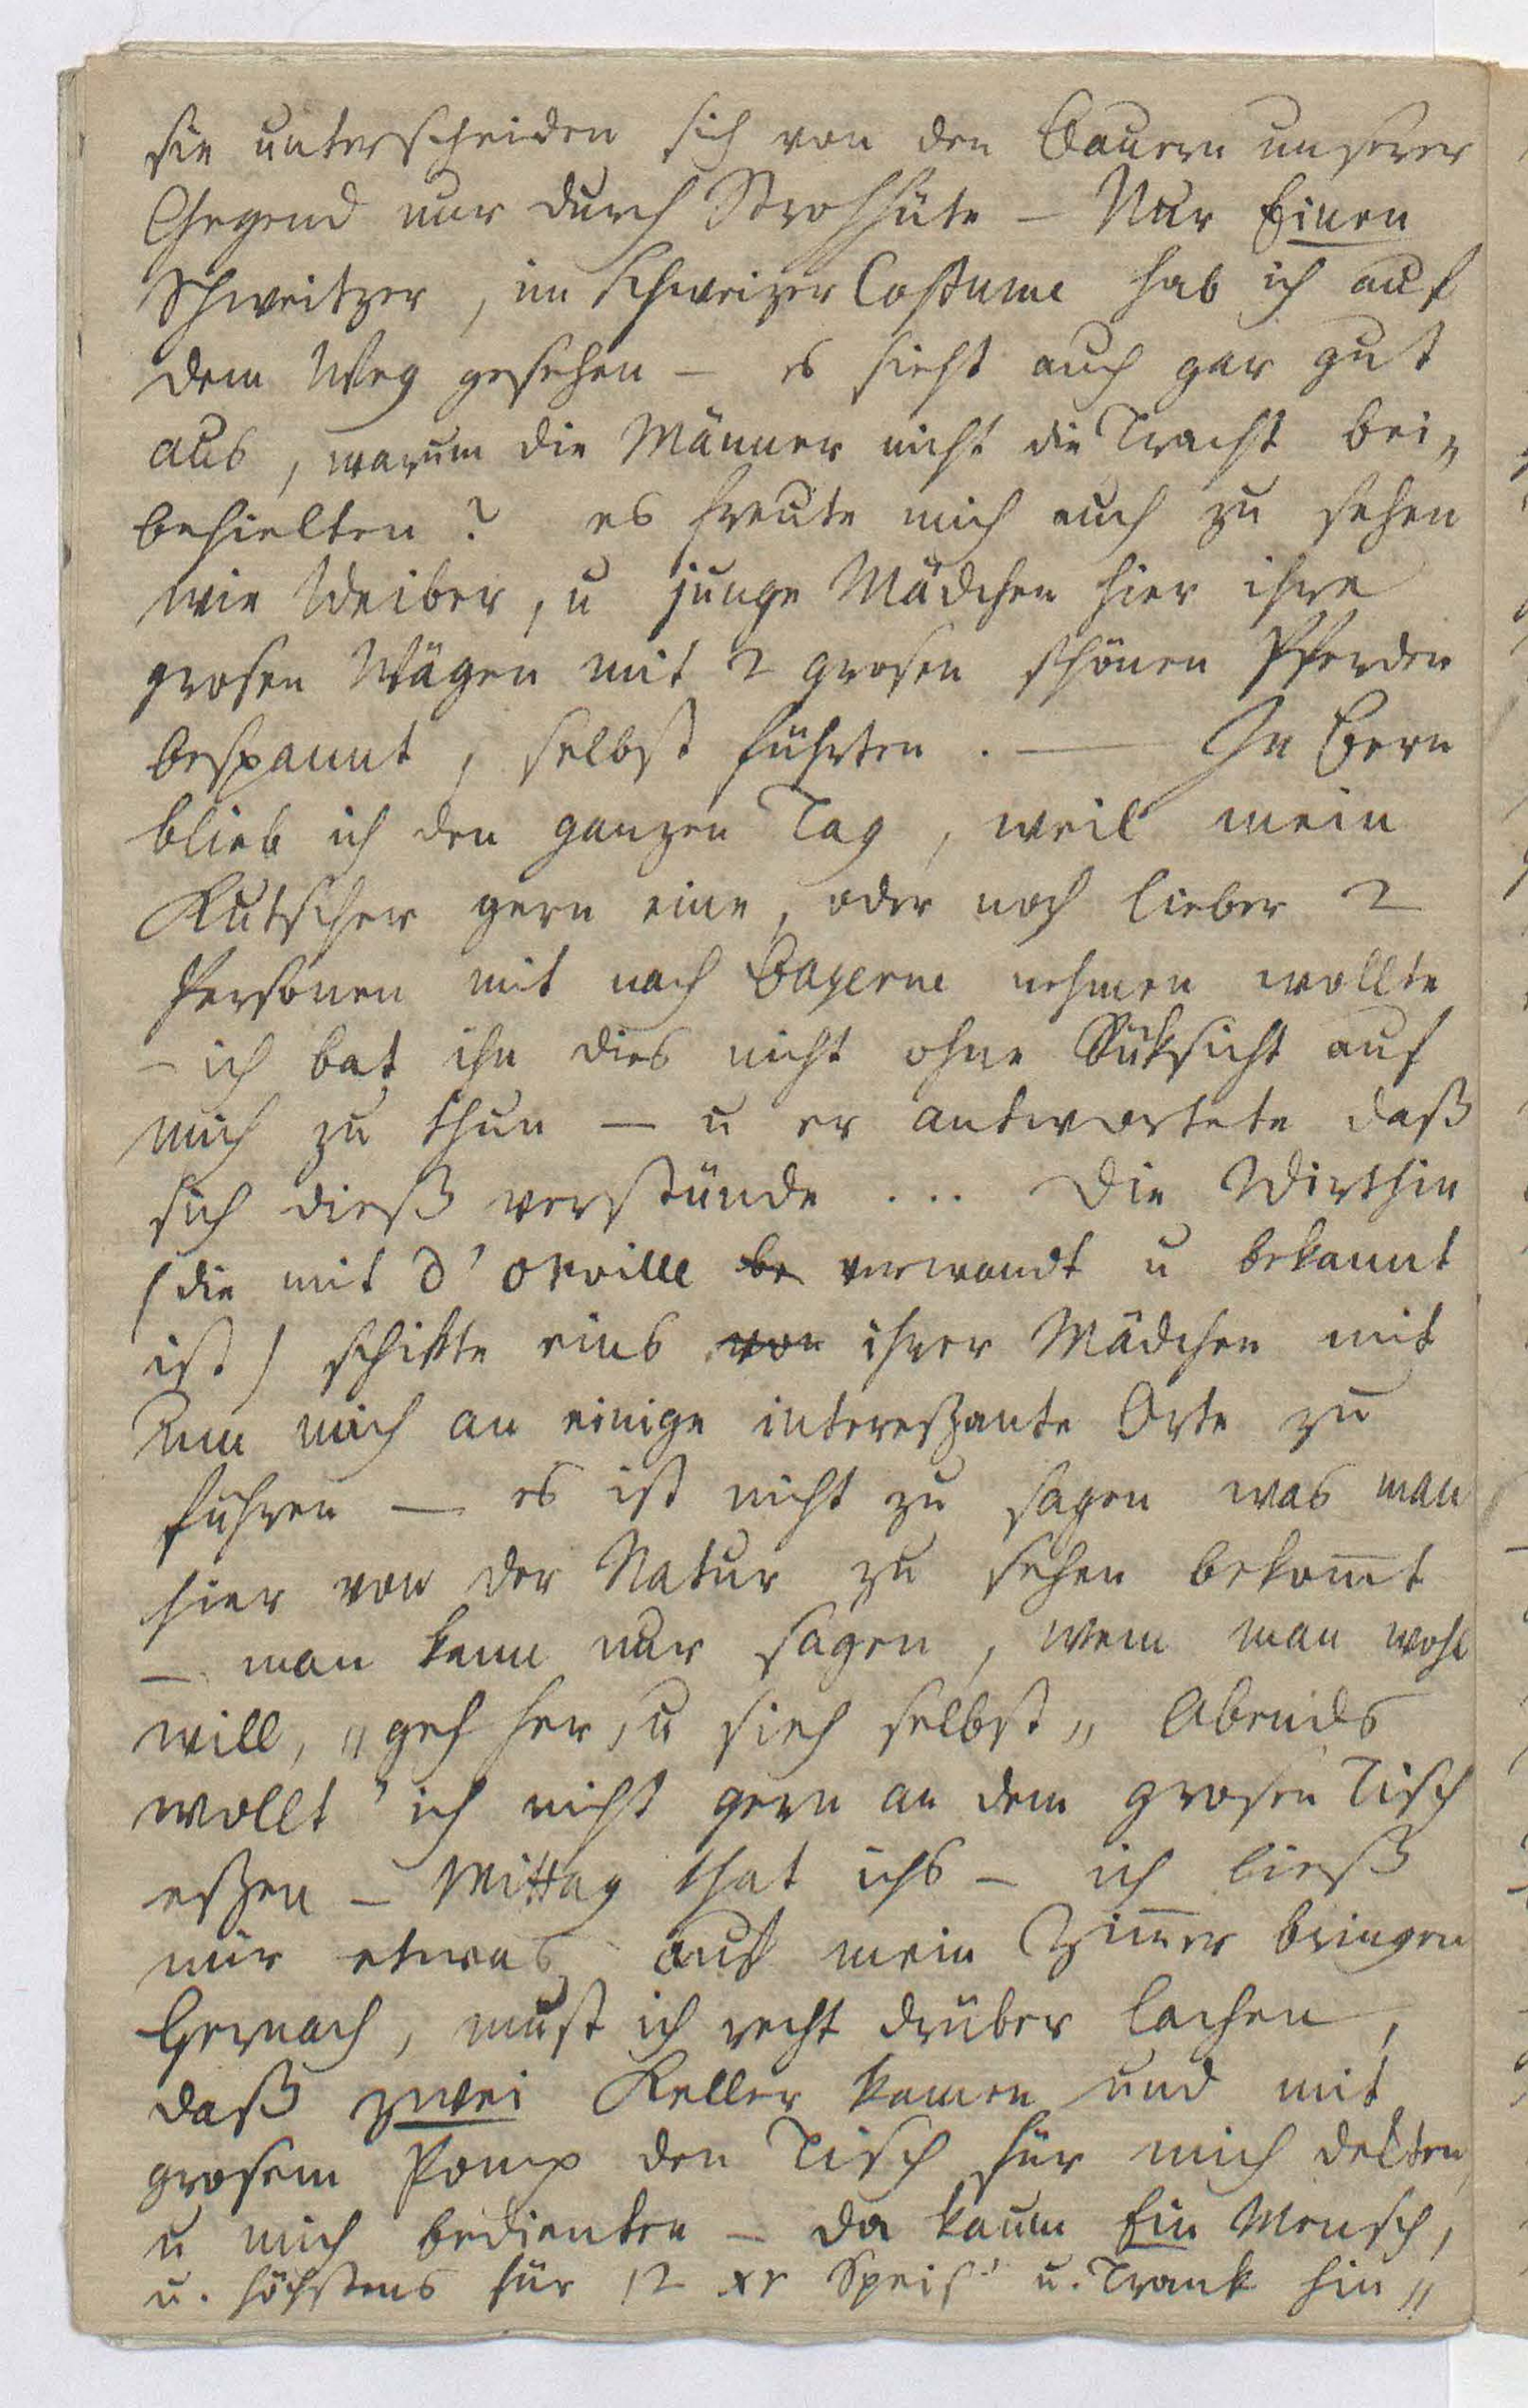 sie unterscheiden sich von den Bauern unserer
Gegend nur durch Strohhüte – Nur Einen
Schweitzer, im Schweizer Costume hab ich auf
dem Weg gesehen – es sieht auch gar gut
aus, warum die Männer nicht die Tracht bei„
behielten? es freute mich auch zu sehen
wie Weiber, u junge Mädchen hier ihre
grosen Wägen mit 2 grosen schönen Pferden
bespannt, selbst führten. — In Bern
blieb ich den ganzen Tag, weil mein
Kutscher gern eine, oder noch lieber 2
Personen mit nach Payerne nehmen wollte
– ich bat ihn dies nicht ohne Rüksicht auf
mich zu thun – u er antwortete daß
sich dieß verstünde ... Die Wirthin
(die mit d'orville be verwandt u bekannt
ist) schikte eins von ihrer Mädchen mit
um mich an einige intereßante Orte zu
führen – es ist nicht zu sagen was man
hier von der Natur zu sehen bekom̅t
– man kann nur sagen, wem man wohl
will, „geh her, u sieh selbst„ Abends
wollt' ich nicht gern an dem grosen Tisch
eßen – Mittag that ichs – ich ließ
mir etwas auf mein Zim̅er bringen
Hernach, must ich recht drüber lachen,
daß zwei Keller kamen und mit
grosem Pomp den Tisch für mich dekten,
u mich bedienten – da kaum Ein Mensch,
u. höchstens für 12 xr Speis' u. Trank hin„